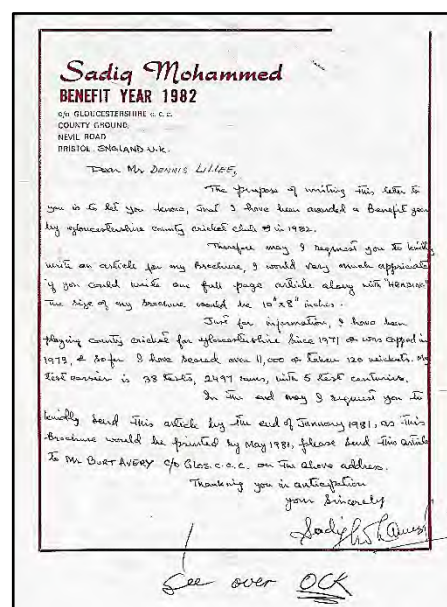 Sadiq Mohammed
BENEFIT YEAR 1982
c/o GLOUCESTERSHIRE c.c.c.
COUNTY GROUND,
NEVIL ROAD
BRISTOL ENGLAND U.K.
Dear Mr DENNIS LILLEE,
The purpose of writing this letter to
you is to let you know, that I have been awarded a Benefit year
by gloucestershire county cricket club in 1982.
Therefore may I request you to kindly
write an article for my Brochure, I would very much appreciate
if you could write one full page article along with "HEADING"
The size of my brochure would be 10"x8" inches.
Just for information, I have been
playing county cricket for gloucestershire since 1971 & was capped in
1973, & so far I have scored over 11,000 & taken 120 wickets. My
test carrier is 38 tests, 2497 runs, with 5 test centuries.
In the end may I request you to
kindly send this article by the end of January 1981, as this
Brochure would be printed by May 1981, please send this article
to Mr BURT AVERY c/o Glos.c.c.c. on the above address.
Thanking you in anticipation
your Sincerely
Sadiq
See over OCK